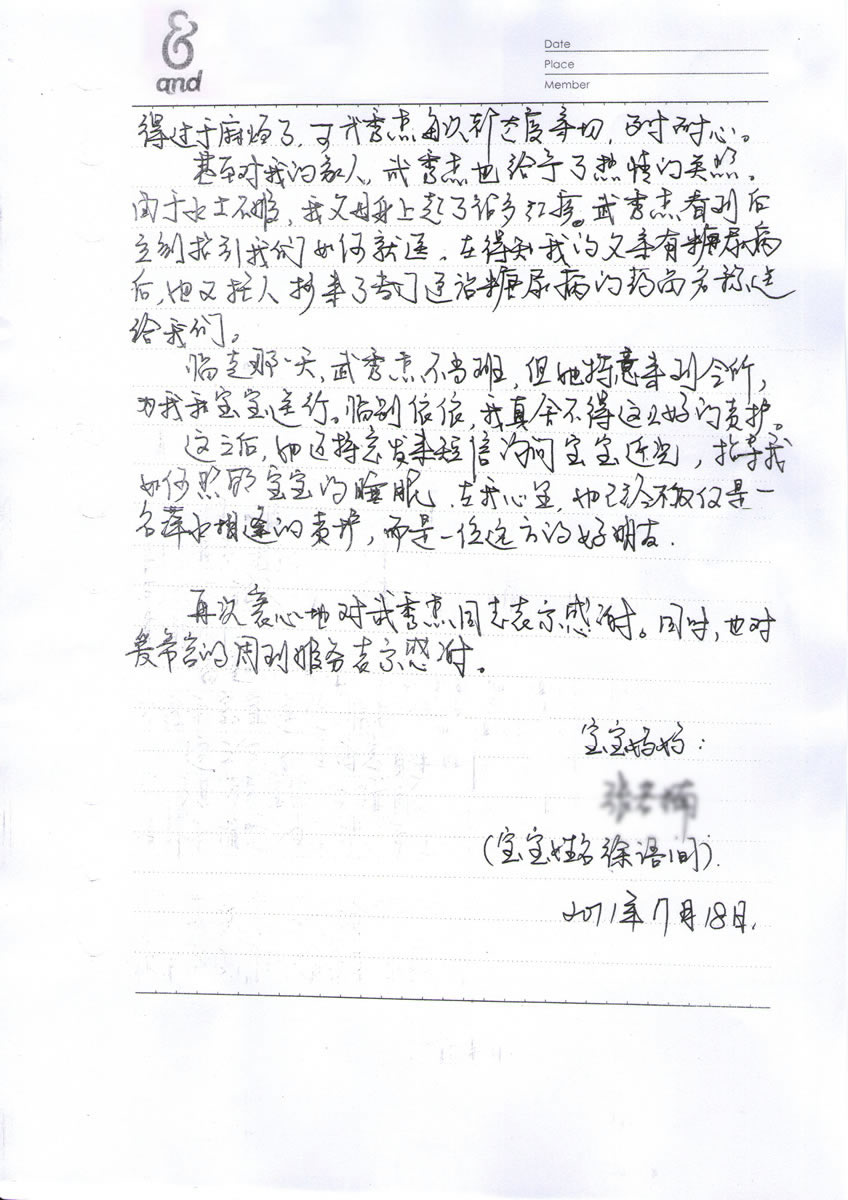 &
and
Date
Place
Member
得过于麻烦了，可武秀杰每次都态度亲切，百才耐心。
甚至对我的家人，武秀杰也给予了热情的关照。
由于水土不服，我父母身上起了许多红疹。武秀杰看到后
立刻指引我们如何就医。在得知我的父亲有糖尿病
后，她又托人抄来了专门医治糖尿病的药品名称送
给我们。
临走那一天，武秀杰不当班，但她特意来到会所，
为我和宝宝送行。临别依依，我真舍不得这么好的责护。
这之后，她还特意发来短信询问宝宝近况，指导我
如何照顾宝宝的睡眠。在我心里，她已经不仅仅是一
名萍水相逢的责护，而是一位远方的好朋友.
再次衷心地对武秀杰同志表示感谢。同时，也对
爱帝宫的周到服务表示感谢。
宝宝妈妈：
（宝宝姓名徐语）.
2011年7月18日.